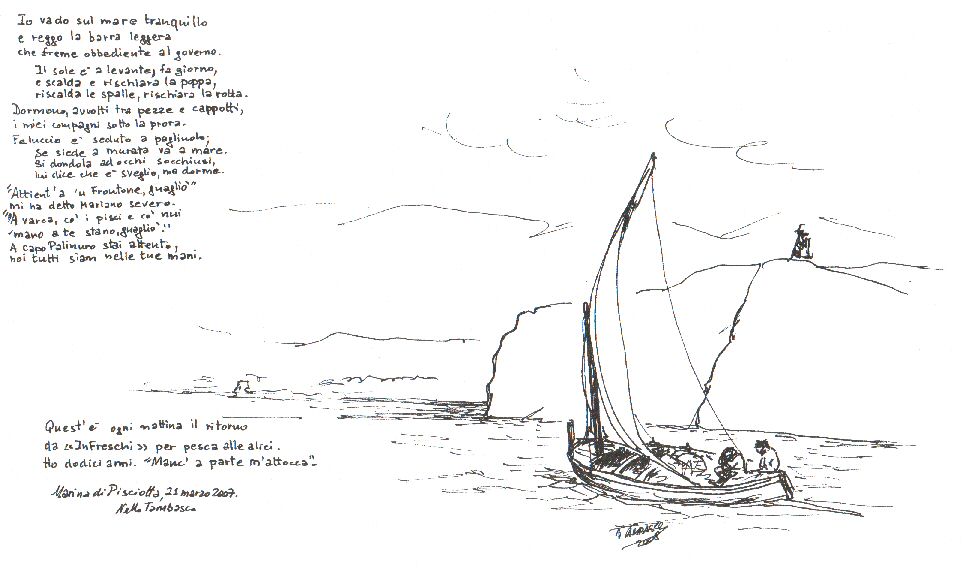 Io vado sul mare tranquillo
e reggo la barra leggera
che freme obbediente al governo.
Il sole è a levante, fa giorno,
e scalda e rischiara la poppa,
riscalda le spalle, rischiara la rotta.
Dormono, avvolti tra pezze e cappotti,
i miei compagni sotto la prora.
Feluccio è seduto a pagliuolo;
se siede a murata va a mare.
Si dondola ad occhi socchiusi,
lui dice che è sveglio, ma dorme.
"Attient'a 'u Frontone, guagliò"
mi ha detto Mariano severo.
"A varca, co' i pisci e co' nui
'mano a te stano, guagliò."
A capo Palinuro stai attento,
noi tutti siam nelle tue mani.
Quest'è ogni mattina il ritorno
da «InFreschi» per pesca alle alici.
Ho dodici anni. "Manc' a parte m'attocca".
Marina di Pisciotta, 21 marzo 2007.
Nello Tambasco